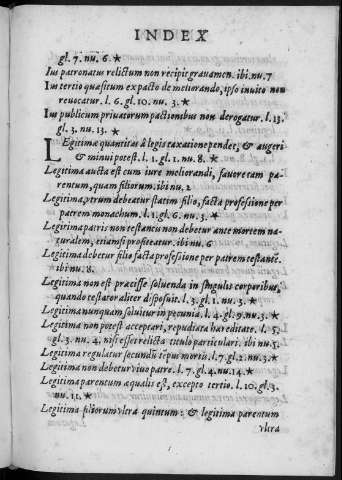 INDEX
gl. 7. nu. 6. ★
Ius patronatus relictum non recipit grauamen. ibi nu. 7
Ius tertio quæsitum ex pacto de meliorando, ipso inuito non
reuocatur. l. 6. gl. 10. nu. 3. ★
Ius publicum priuatorum pactionibus non derogatur. l. 13.
gl. 3. nu. 13. ★
LEgitimæ quantitas à legis taxatione pendet, & augeri
& minui potest. l. 1. gl. 1. nu. 8. ★
Legitima aucta est cum iure meliorandi, fauore tam pa-
rentum, quam filiorum. ibi nu. 2
Legitima, vtrum debeatur statim filio, facta professione per
patrem monachum. l. 1. gl. 6. nu. 3. ★
Legitima patris non testantis non debetur ante mortem na-
turalem, etiamsi profiteatur. ibi nu. 6
Legitima debetur filio facta professione per patrem testantẽ.
ibi nu. 8.
Legitima non est præcisse soluenda in singulis corporibus,
quando testator aliter disposuit. l. 3. gl. 1. nu. 3. ★
Legitima nunquam soluitur in pecunia. l. 4. gl. 9. nu. 3. ★
Legitima non potest acceptari, repudiata hæreditate. l. 5.
gl. 3. nu. 4. nisi esset relicta titulo particulari. ibi nu. 5.
Legitima regulatur secundũ tẽpus mortis. l. 7. gl. 2. nu. 3. ★
Legitima non debetur viuo patre. l. 7. gl. 4. nu. 14. ★
Legitima parentum æqualis est, excepto tertio. l. 10. gl. 3.
nu. 11. ★
Legitima filiorum vltra quintum: & legitima parentum
vltra